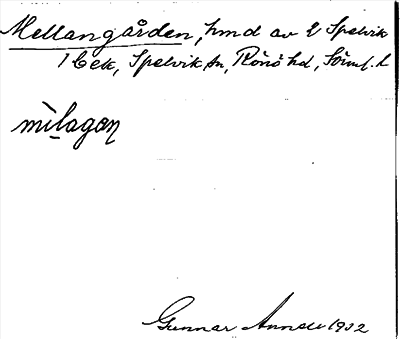 Mellangården, hmd av 2 Spelvik
1 Cek, Spelvik sn, Rönö hd, Söml. l
mìlagaɳ
Gunnar 1932